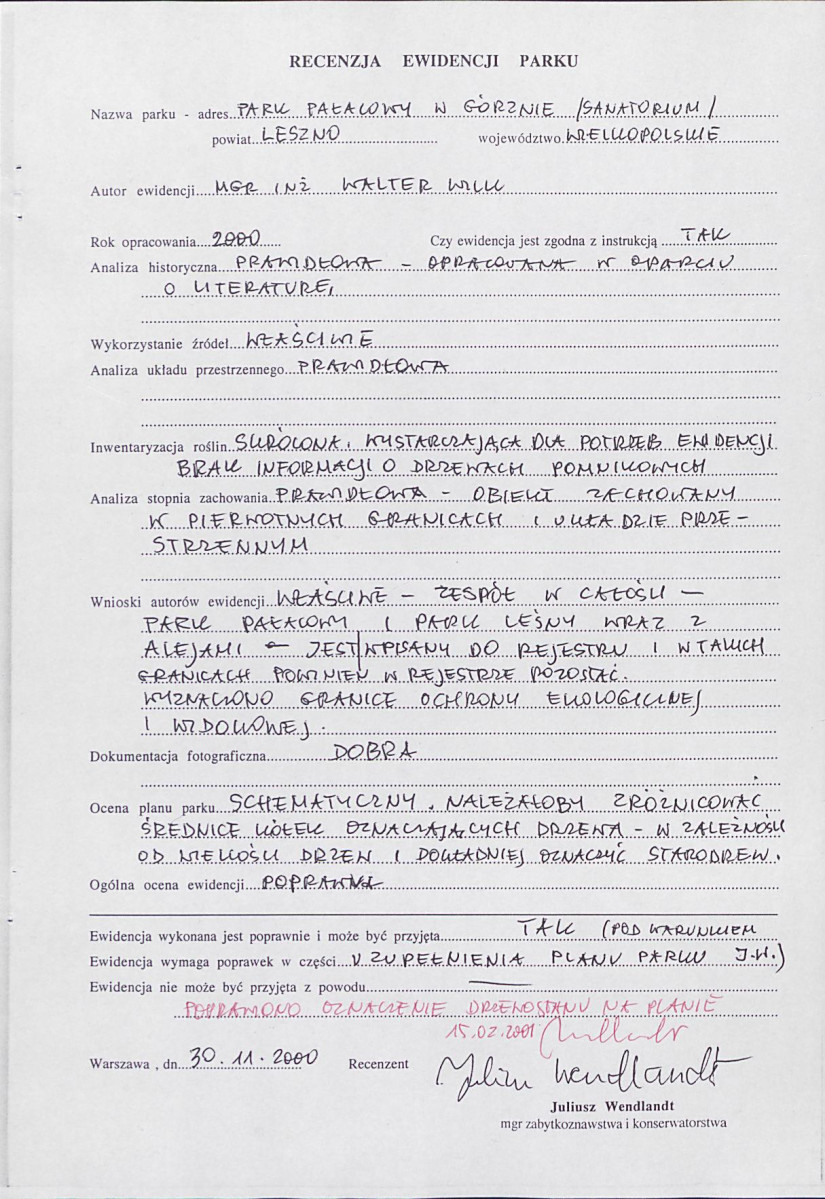 RECENZJA EWIDENCJI PARKU
Nazwa parku - adres PARK PAŁACOWY W GÓRZNIE /SANATORIUM/
powiat LESZNO województwo WIELKOPOLSKIE
Autor ewidencji MGR INŻ WALTER WILK
Rok opracowania 2000 Czy ewidencja jest zgodna z instrukcją TAK
Analiza historyczna PRAWIDŁOWA - OPRACOWANA W OPARCIU
O LITERATURĘ,
Wykorzystanie źródeł WŁAŚCIWIE
Analiza układu przestrzennego PRAWIDŁOWA
Inwentaryzacja roślin SKRÓCONA, WYSTARCZAJĄCA DLA POTRZEB EWIDENCJI
BRAK INFORMACJI O DRZEWACH POMNIKOWYCH
Analiza stopnia zachowania PRAWIDŁOWA - OBIEKT ZACHOWANY
W PIERWOTNYCH GRANICACH I UKŁADZIE PRZE-
STRZENNYM
Wnioski autorów ewidencji WŁAŚCIWE - ZESPÓŁ W CAŁOŚCI -
PARK PAŁACOWY I PARK LEŚNY WRAZ Z
ALEJAMI - JEST WPISANY DO REJESTRU I W TAKICH
GRANICACH POWINIEN W REJESTRZE POZOSTAĆ.
WYZNACZONO GRANICE OCHRONY EKOLOGICZNEJ
I WIDOKOWEJ.
Dokumentacja fotograficzna DOBRA
Ocena planu parku SCHEMATYCZNY. NALEŻAŁOBY ZRÓŻNICOWAĆ
ŚREDNICE KÓŁEK OZNACZAJĄCYCH DRZEWA - W ZALEŻNOŚCI
OD WIELKOŚCI DRZEW I DOKŁADNIEJ OZNACZYĆ STARODRZEW.
Ogólna ocena ewidencji POPRAWNA
Ewidencja wykonana jest poprawnie i może być przyjęta TAK (POD WARUNKIEM
Ewidencja wymaga poprawek w części UZUPEŁNIENIA PLANU PARKU J.W.)
Ewidencja nie może być przyjęta z powodu —
POPRAWIONO OZNACZENIE DRZEWOSTANU NA PLANIE
15.02.2001 Wendlandt
Warszawa , dn. 30.11.2000 Recenzent Juliusz Wendlandt
Juliusz Wendlandt
mgr zabytkoznawstwa i konserwatorstwa